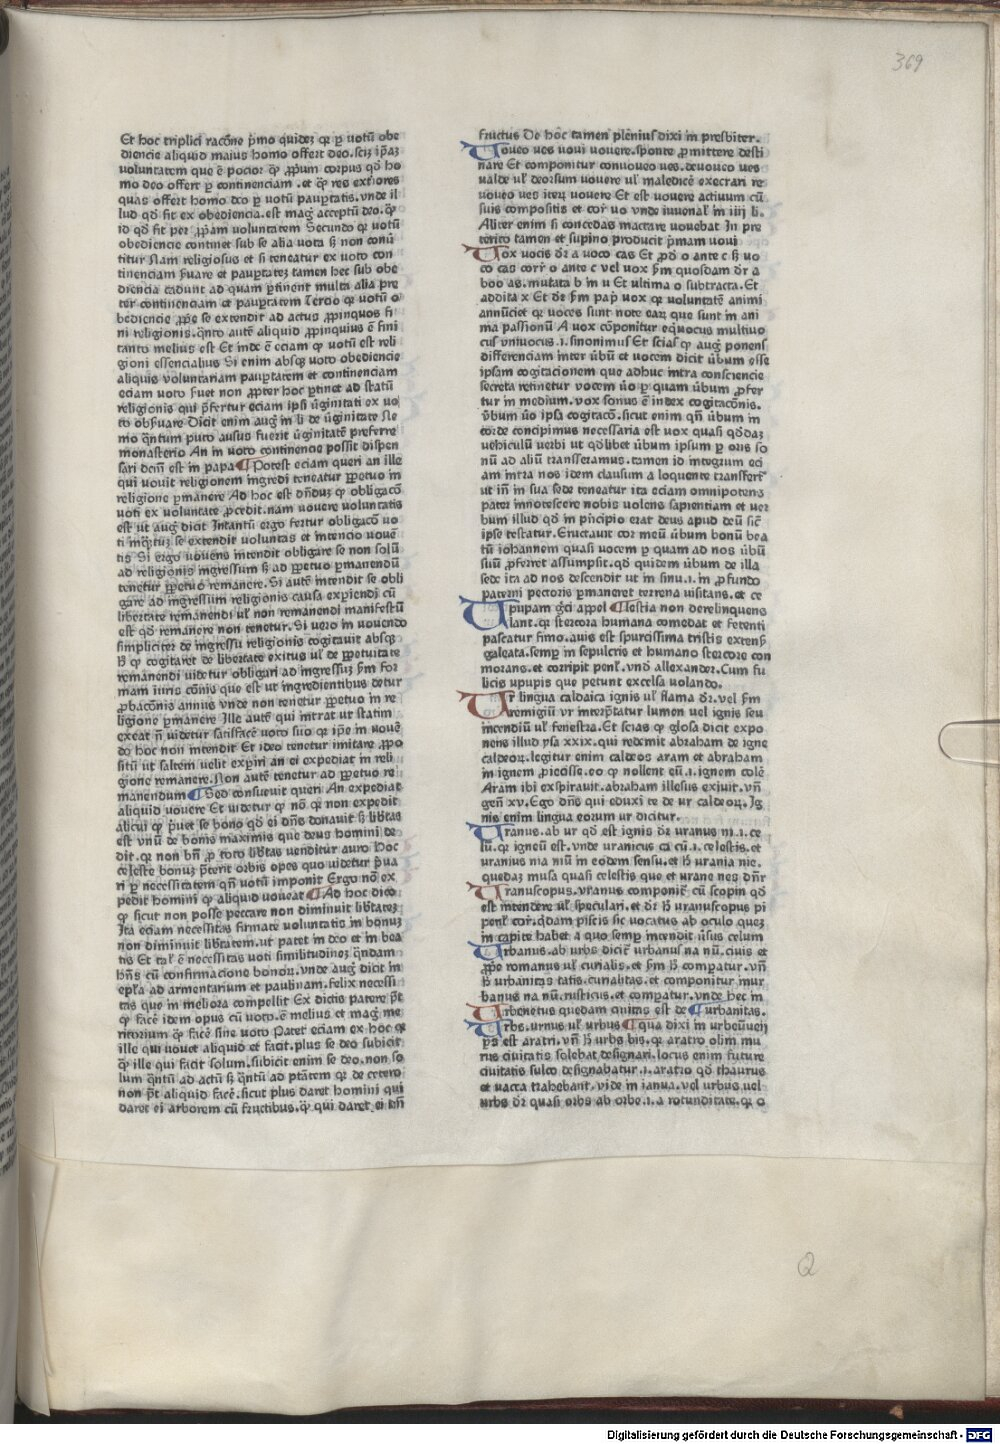 369
Et hoc triplici racõne p̃mo quideʒ qr ꝑ uotũ obe
diencie aliquid maius homo offert deo.sciʒ ip̃aʒ
voluntatem que ẽ pocior q̃ ꝓpũm corpus qd̃ ho
mo deo offert ꝑ continenciam.et q̃ res ext̃iores
quas offert homo deo ꝑ uotũ paup̃tatis.vnde il
lud qd̃ fit ex obediencia.est mag̃ acceptũ deo.q̃
id qd̃ fit per ꝓp̃am voluntatem Secundo qr uotũ
obediencie continet sub se alia vota sʒ non conũ
titur Nam religiosus et si teneatur ex uoto con
tinenciam s̃uare et paup̃tateʒ tamen hec sub obe
diencia cadunt ad quam p̃tinent multa alia pre
ter continenciam et paup̃tatem Tercio qr uotũ o
bediencie ꝓp̃e se extendit ad actus ꝓpinquos fi
ni religionis.q̃nto autẽ aliquid ꝓpinquius ẽ fini
tanto melius est Et inde ẽ eciam qr uotũ est reli
gioni essencialius Si enim absqʒ uoto obediencie
aliquis voluntariam paup̃tatem et continenciam
eciam uoto s̃uet non ꝓpter hoc p̃tinet ad statũ
religionis qui p̃fertur eciam ipsi ũginitati ex uo
to obs̃uare Dicit enim aug̃ in li de ũginitate Ne
mo q̃ntum puto ausus fuerit ũginitatẽ preferre
monasterio An in uoto continencie possit dispen
sari dcm̃ est in papa ¶ Potest eciam queri an ille
qui vouit religionem ingredi teneatur ꝑpetuo in
religione ꝑmanere Ad hoc est dñduʒ q̃ obligacõ
voti ex voluntate ꝓcedit.nam vouere voluntatis
est ut aug̃ dicit Intantũ ergo fertur obligacõ uo
ti inq̃ntuʒ se extendit voluntas et intencio vouẽ
tis Si ergo vouens intendit obligare se non solũ
ad religionis ingressum sʒ ad ꝑpetuo ꝑmanendũ
tenetur ꝑpetuo remanere.Si autẽ intendit se obli
gare ad ingressum religionis causa exp̃iendi cũ
libertate remanendi ul̃ non remanendi manifestũ
est qd̃ remanere non tenetur.Si vero in vouendo
simpliciter de ingressu religionis cogitauit absqʒ
h̃ q̃ cogitaret de libertate exitus ul̃ de ꝑpetuitate
remanendi uidetur obligari ad ingressuʒ s̃m for
mam iuris cõnis que est ut ingredientibus detur
ꝓbacõnis annus vnde non tenetur ꝑpetuo in re
ligione ꝑmanere Ille autẽ qui intrat ut statim
exeat ñ videtur satisfacẽ uoto suo qr ip̃e in vouẽ
do hoc non intendit Et ideo tenetur imitare ꝓpo
situ͂ ut saltem uelit exp̃iri an ei expediat in reli
gione remanere.Non autẽ tenetur ad ꝑpetuo re
manendum ¶ Sed consueuit queri An expediat
aliquid uouere Et uidetur q̃ nõ qr non expedit
alicui q̃ p̃uet se bono qd̃ ei dñs donauit sʒ lib̃tas
est vnũ de bonis maximis que deus homini de
dit.qr non bñ ꝓ toto lib̃tas venditur auro hoc
celeste bonuʒ p̃terit orbis opes quo uidetur p̃ua
ri ꝑ necessitatem qñ votũ imponit Ergo nõ ex
pedit homini q̃ aliquid uoueat ¶ Ad hoc dico
q̃ sicut non posse peccare non diminuit lib̃tateʒ
Ita eciam necessitas firmate voluntatis in bonuʒ
non diminuit lib̃tatem.ut patet in deo et in bea
tis Et tal̃ ẽ necessitas uoti similitudineʒ q̃ndam
hñs cũ confirmacione bonoꝝ.vnde aug̃ dicit in
epl̃a ad armentarium et paulinam.felix necessi
tas que in meliora compellit Ex dictis patere p̃t
q̃ facẽ idem opus cũ uoto.ẽ melius et mag̃ me
ritorium q̃ facẽ sine uoto Patet eciam ex hoc qr
ille qui uouet aliquid et facit.plus se deo subicit
q̃ ille qui facit solum.subicit enim se deo.non so
lum q̃ntũ ad actũ sʒ q̃ntũ ad p̃tãtem qr de cetero
non p̃t aliquid facẽ.sicut plus daret homini qui
daret ei arborem cũ fructibus.q̃ qui daret ei tm̃
fructus De hoc tamen plenius dixi in presbiter.
Voueo ues uoui uouere.sponte ꝓmittere desti
nare Et componitur conuoueo ues.deuoueo ues
valde ul̃ deorsum uouere ul̃ maledicẽ execrari re
uoueo ues iteꝝ uouere Et est uouere actiuum cũ
suis compositis et cor̃ uo vnde iuuenal̃ in iiij li.
Aliter enim si concedas mactare uouebat In pre
terito tamen et supino producit p̃mam uoui
Vox vocis dr̃ a uoco cas Et ꝓd̃ o ante c sʒ uo
co cas corr̃ o ante c vel uox s̃m quosdam dr̃ a
boo as.mutata b in u Et ultima o subtracta.Et
addita x Et dr̃ s̃m pap̃ uox qr voluntatẽ animi
annũciet qr uoces sunt note eaꝝ que sunt in ani
ma passionũ A uox cõponitur equocus multiuo
cus vniuocus.i.sinonimus Et scias q̃ aug̃ ponens
differenciam inter ũbũ et uocem dicit ũbum esse
ipsam cogitacionem que adhuc intra consciencie
secreta retinetur vocem ũo ꝑ quam ũbum ꝓfer
tur in medium.vox sonus ẽ index cogitacõnis.
ũbum ũo ipsa cogitacõ.sicut enim qñ ũbum in
corde concipimus necessaria est uox quasi qd̃daʒ
uehiculũ uerbi ut qd̃libet ũbum ipsum ꝑ oris so
nũ ad aliũ transferamus.tamen id integrum eci
am intra nos idem clausum a loquente transfert̃
ut in̄ in sua sede teneatur ita eciam omnipotens
pater innotescere nobis volens sapientiam et uer
bum illud qd̃ in p̃ncipio erat deus apud deũ sic̃
ipse testatur.Eructauit cor meũ ũbum bonũ bea
tũ iohannem quasi uocem ꝑ quam ad nos ũbũ
suũ ꝓferret assumpsit.qd̃ quidem ũbum de illa
sede ita ad nos descendit ut in sinu.i.in ꝓfundo
paterni pectoris ꝑmaneret terrena uisitans.et ce
Vpupam g̃ci appel ¶ lestia non derelinquens
lant.qr stercora humana comedat et fetenti
pascatur fimo.auis est spurcissima tristis extens̃
galeata.semꝑ in sepulcris et humano stercore con
morans.et corripit penl̃.vnd̃ allexander.Cum fu
licis upupis que petunt excelsa uolando.
Vr lingua caldaica ignis ul̃ flama dr̃.vel s̃m
remigiũ vr interp̃tatur lumen uel ignis seu
incendiũ ul̃ fenestra.Et scias q̃ glosa dicit expo
nens illud ysa xxix.qui redemit abraham de igne
caldeoꝝ.legitur enim caldeos aram et abraham
in ignem ꝓiecisse.eo q̃ nollent eũ.i.ignem colẽ
Aram ibi exspirauit.abraham illesus exiuit.vñ
geñ xv.Ego dñs qui eduxi te de ur caldeoꝝ.Ig
nis enim lingua eorum ur dicitur.
Vranus.ab ur qd̃ est ignis dr̃ uranus ni.i.ce
lũ.qr igneũ est.vnde uranicus ca cũ.i.celestis.et
uranius nia niũ in eodem sensu.et h̃ urania nie.
quedaʒ musa quasi celestis que et urane nes dn̄r
Vranuscopus.vranus componit̃ cũ scopin qd̃
est intendere ul̃ speculari.et dr̃ h̃ uranuscopus pi
penl̃ cor̃.q̃dam piscis sic uocatus ab oculo queʒ
in capite habet a quo semꝑ intendit ũsus celum
Vrbanus.ab urbs dicit̃ urbanus na nũ.ciuis et
ꝓp̃e romanus ul̃ curialis.et s̃m h̃ comp̃atur.vñ
h̃ urbanitas tatis.curialitas.et componitur inur
banus na nũ.rusticus.et comp̃atur.vnde hec in
Vrbenetus quedam ciuitas est de ¶ urbanitas.
Vrbs.urnus ul̃ urbus ¶ qua dixi in urbeũuerj
ps est aratri.vñ h̃ urbs bis.qr aratro olim mu
rus ciuitatis solebat designari.locus enim future
ciuitatis sulco designabatur.i.aratro qd̃ thaurus
et uacca trahebant.vide in ianua.vel urbus uel
urbs dr̃ quasi orbs ab orbe.i.a rotunditate.qr o
Q
Digitalisierung gefördert durch die Deutsche Forschungsgemeinschaft - DFG